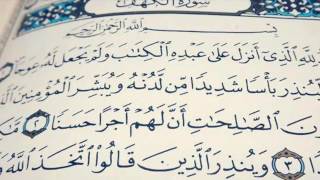 سُورَةُ الْكَهْفِ
بِسْمِ اللَّهِ الرَّحْمَٰنِ الرَّحِيمِ
لِلَّهِ الَّذِي أَنزَلَ عَلَىٰ عَبْدِهِ الْكِتَابَ وَلَمْ يَجْعَل لَّهُ عِوَجًا
لِّيُنذِرَ بَأْسًا شَدِيدًا مِّن لَّدُنْهُ وَيُبَشِّرَ الْمُؤْمِنِينَ
الصَّالِحَاتِ أَنَّ لَهُمْ أَجْرًا حَسَنًا ٢
٣ وَيُنذِرَ الَّذِينَ قَالُوا اتَّخَذَ اللَّهُ